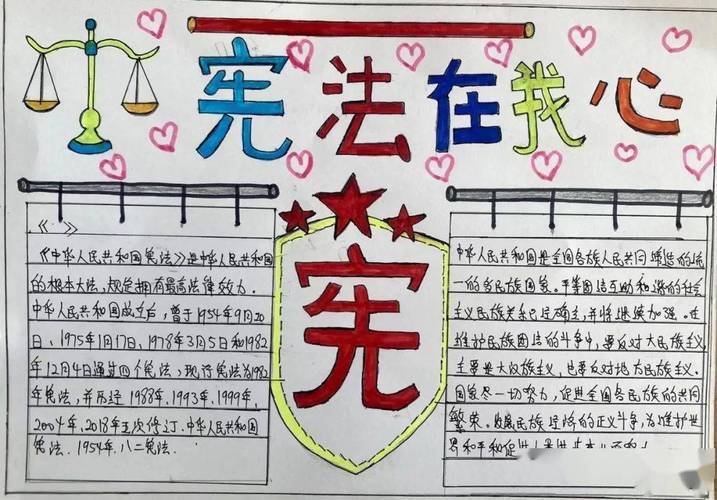 宪法在我心
《 》
《中华人民共和国宪法》是中华人民共和国
的根本大法，规定拥有最高法律效力．
中华人民共和国成立后，曾于1954年9月20
日、1975年1月17日、1978年3月5日和1982
年12月4日通过四个宪法，现行宪法为1982
年宪法，并历经1988年、1993年、1999年、
2004年、2018年五次修订．中华人民共和国
宪法．1954年．八二宪法．
宪
中华人民共和国是全国各族人民共同缔造的统
一的多民族国家。平等团结互助和谐的社会
主义民族关系已经确立，并将继续加强。在
维护民族团结的斗争中，要反对大民族主义
主要是大汉族主义，也要反对地方民族主义．
国家尽一切努力，促进全国各民族的共同
繁荣。发展民族经济的正义斗争，为维护世
界和平和促进人类进步事业